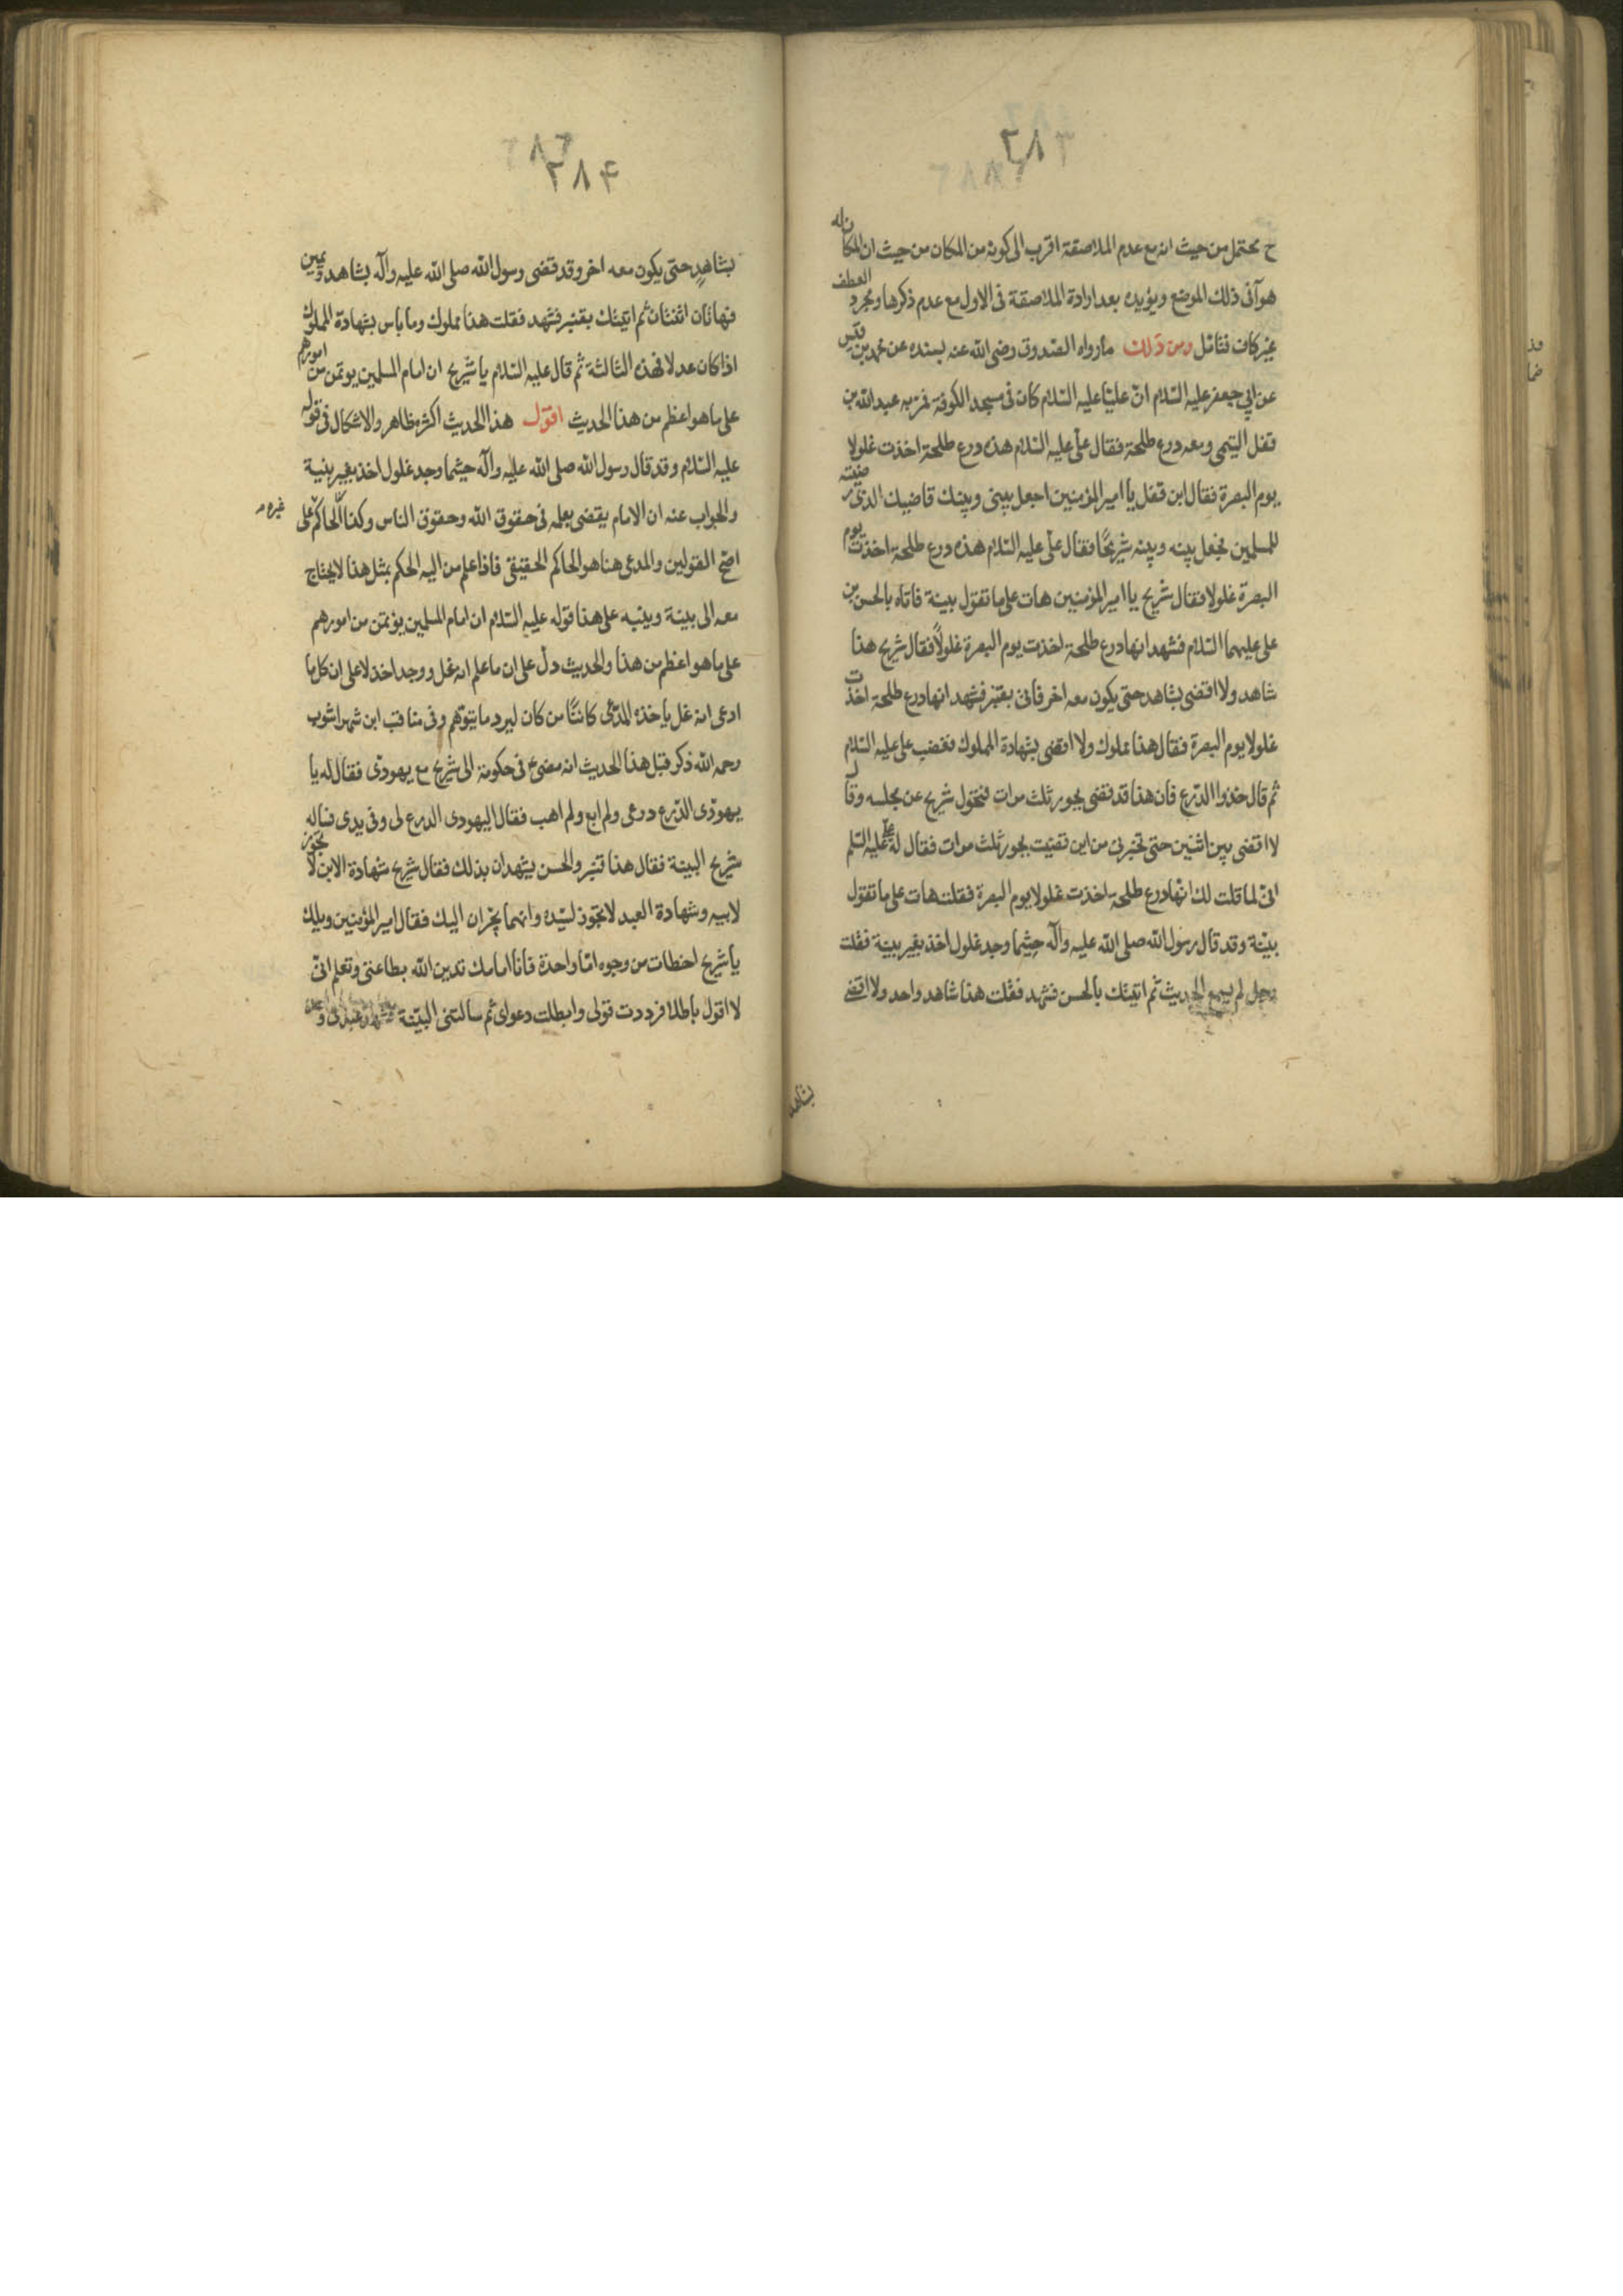 ٢٨٣
ح يحتمل من حيث انه مع عدم الملاصقة اقرب الى كونه من المكان من حيث ان المكان له
هو آتى ذلك الموضع ويؤيده بعد ارادة الملاصقة فى الاول مع عدم ذكرها ومجرد العطف
غير كاف فتامل ومن ذلك مارواه الصدوق رضى الله عنه بسنده عن محمد بن قيس
عن ابي جعفر عليه السلام انّ عليّا عليه السّلام كان فى مسجد الكوفة فمرّ به عبد الله بن
قفل التيمى ومعه درع طلحة فقال علىّ عليه السلام هذه درع طلحة اخذت غلولا
يوم البصرة فقال ابن قفل يا امير المؤمنين اجعل بينى وبينك قاضيك الذى رضيته
للمسلمين فجعل بينه وبينه شريحًا فقال علىّ عليه السّلام هذه درع طلحة اخذت يوم
البصرة غلولا فقال شريح يا امير المؤمنين هات على ما تقول بينة فاتاه بالحسن بن
على عليهما السّلام فشهد انها درع طلحة اخذت يوم البصرة غلولاً فقال شريح هذا
شاهد ولا اقضى بشاهد حتى يكون معه اخر فاتى بقنبر فشهد انها درع طلحة اخذت
غلولا يوم البصرة فقال هذا مملوك ولا اقضى بشهادة المملوك فغضب على عليه السّلام
ثم قال خذوا الدّرع فان هذا قد قضى بجور ثلث مرات فتحول شريح عن مجلسه وقال
لا اقضى بين اثنين حتى تخبرنى من اين قضيت بجور ثلث مرات فقال له علىّ عليه السّلم
انّى لما قلت لك انّها درع طلحة اخذت غلولا يوم البصرة فقلت هات على ما تقول
بيّنة وقد قال رسول الله صلى الله عليه وآله حيثما وجد غلول اخذ بغير بينة فقلت
رجل لم يسمع الحديث ثم اتيتك بالحسن فشهد فقلت هذا شاهد واحد ولا اقضى
بشاهد
٢٨۴
بشاهدٍ حتى يكون معه اخر وقد قضى رسول الله صلى الله عليه وآله بشاهد ويمين
فهاتان اثنتان ثم اتيتك بقنبر فشهد فقلت هذا مملوك وما باس بشهادة المملوك
اذا كان عدلا فهذه الثالثة ثم قال عليه السّلام يا شريح ان امام المسلمين يوتمن من امورهم
على ما هو اعظم من هذا الحديث اقول هذا الحديث اكثره ظاهر والاشكال فى قوله
عليه السّلام وقد قال رسول الله صلى الله عليه وآله حيثما وجد غلول اخذ بغير بنية
والجواب عنه ان الامام يقضى بعلمه فى حقوق الله وحقوق الناس وكذا الحاكم على
غيره
اصحّ القولين والمدعى هنا هو الحاكم الحقيقى فاذا علم من اليه الحكم بمثل هذا لا يحتاج
معه الى بينة وينبه على هذا قوله عليه السّلام ان امام المسلمين يؤتمن من امورهم
على ما هو اعظم من هذا والحديث دلّ على ان ما علم انه غل ووجد اخذ لا على ان كل ما
ادعى انه غل ياخذه المدّعى كائنًا من كان ليرد ما يتوهم وفى مناقب ابن شهراشوب
رحمه الله ذكر قبل هذا الحديث انه مضى ع فى حكومة الى شريح مع يهودى فقال له يا
يهودى الدّرع درعى ولم ابع ولم اهب فقال اليهودى الدرع لى وفى يدى فساله
شريح البينة فقال هذا قنبر والحسن يشهدان بذلك فقال شريح شهادة الابن لا تجوز
لابيه وشهادة العبد لا تجوز لسيّده وانهما يجران اليك فقال امير المؤمنين ويلك
يا شريح اخطات من وجوه امّا واحدة فانا امامك تدين الله بطاعتى وتعلم انّى
لا اقول باطلا فرددت قولى وابطلت دعواى ثم سالتنى البيّنة